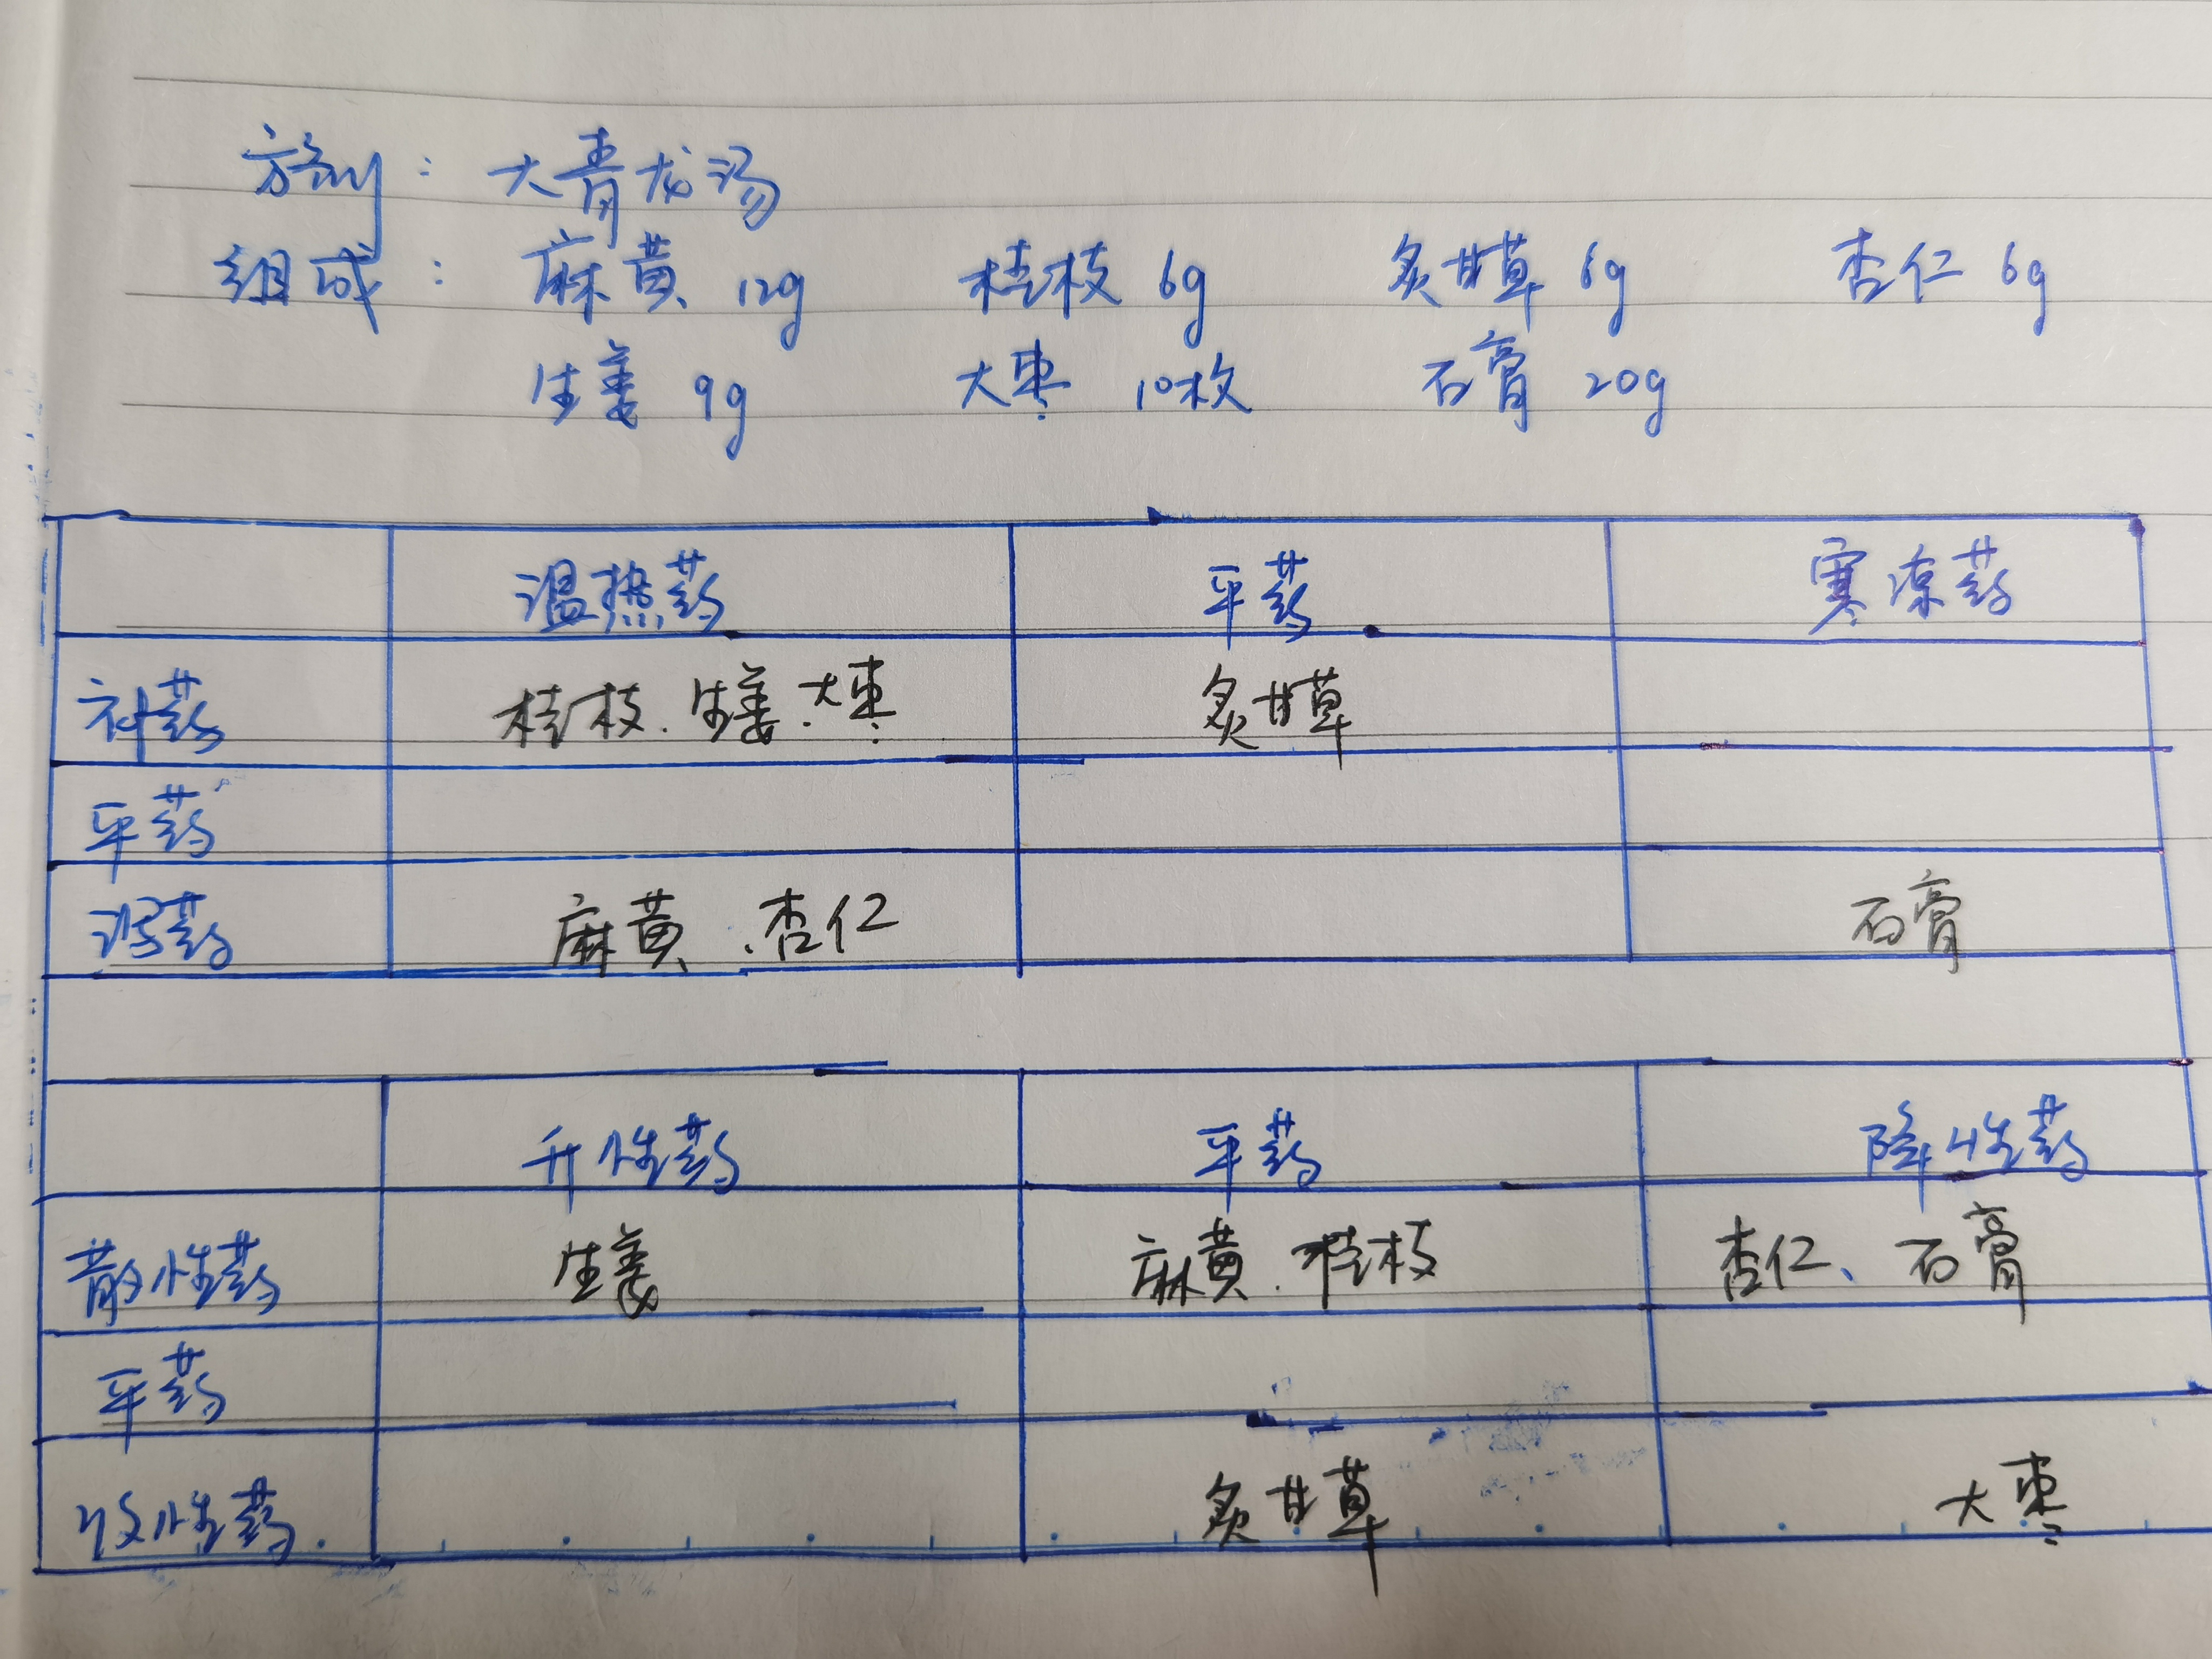 方剂：大青龙汤
组成：麻黄 12g 桂枝 6g 炙甘草 6g 杏仁 6g
生姜 9g 大枣 10枚 石膏 20g
温热药 平药 寒凉药
补药 桂枝.生姜.大枣 炙甘草
平药
泻药 麻黄.杏仁 石膏
升性药 平药 降性药
散性药 生姜 麻黄.桂枝 杏仁、石膏
平药
收性药. 炙甘草 大枣